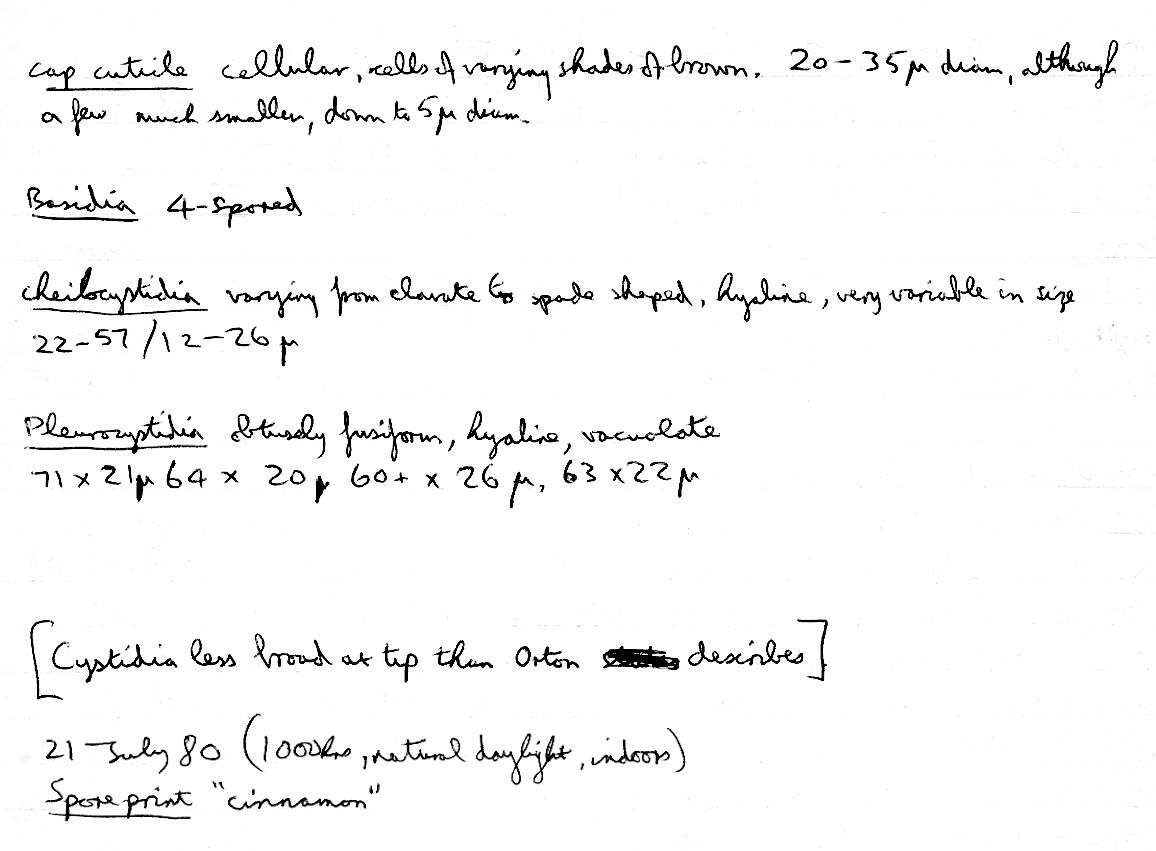 cap cuticle cellular, cells of varying shades of brown. 20-35μ diam, although
a few much smaller, down to 5μ diam.
Basidia 4-spored
cheilocystidia varying from clavate to spade shaped, hyaline, very variable in size
22-57/12-26μ
Pleurocystidia obtusely fusiform, hyaline, vacuolate
71 x 21μ 64 x 20μ 60+ x 26μ, 63 x 22μ
[Cystidia less broad at tip than Orton describes]
21 July 80 (1000hrs, natural daylight, indoors)
Spore print "cinnamon"